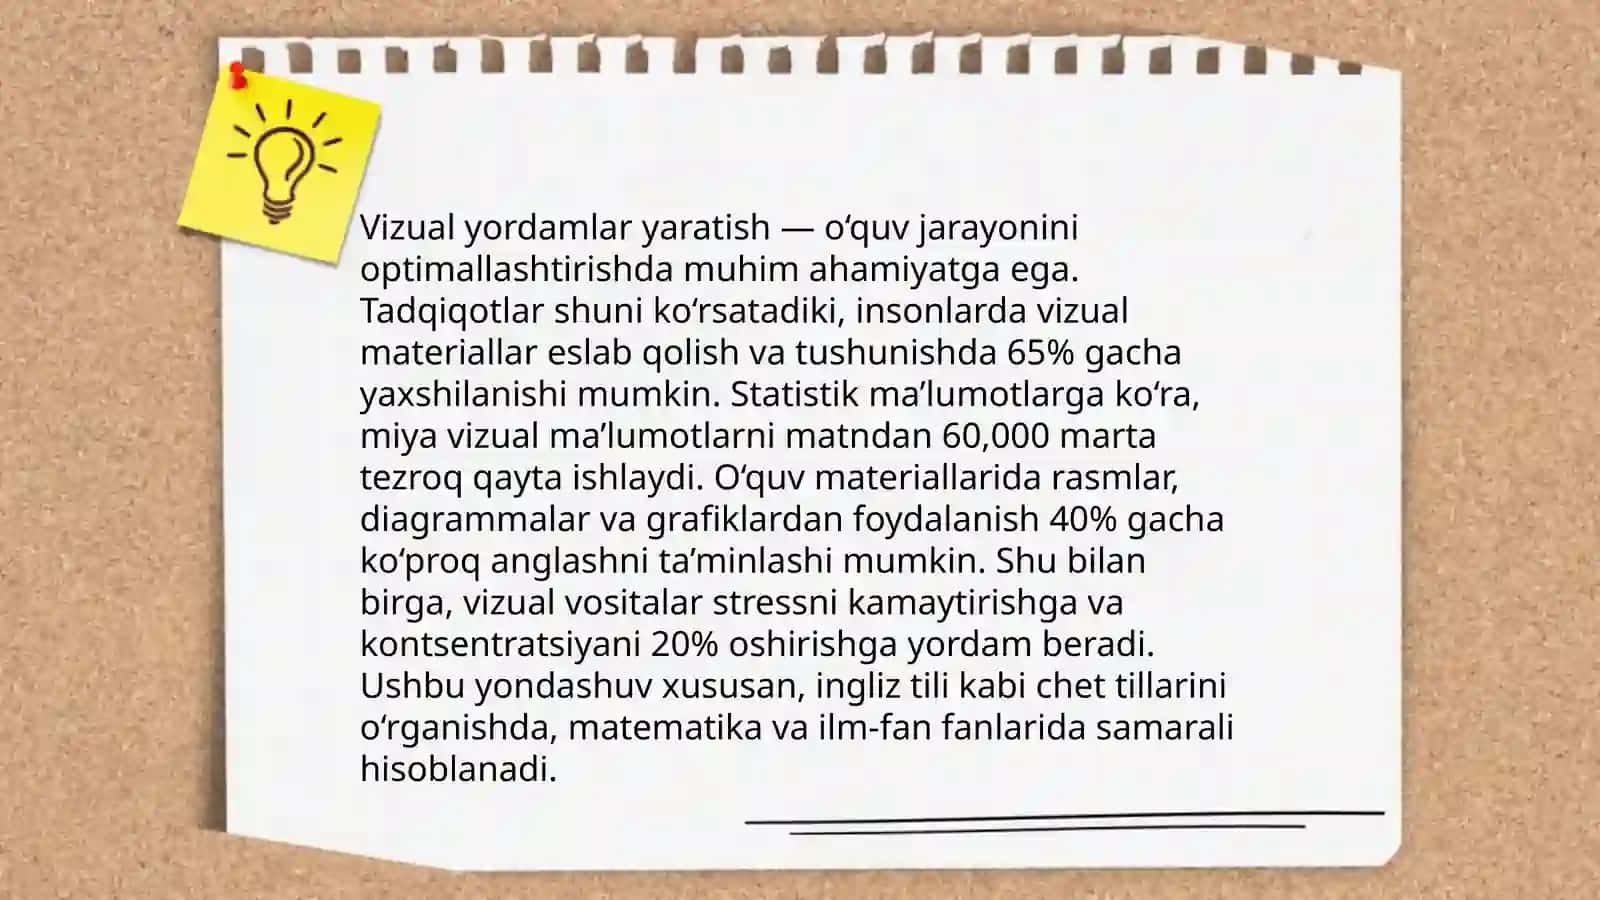 Vizual yordamlar yaratish — oʻquv jarayonini
optimallashtirishda muhim ahamiyatga ega.
Tadqiqotlar shuni koʻrsatadiki, insonlarda vizual
materiallar eslab qolish va tushunishda 65% gacha
yaxshilanishi mumkin. Statistik maʼlumotlarga koʻra,
miya vizual maʼlumotlarni matndan 60,000 marta
tezroq qayta ishlaydi. Oʻquv materiallarida rasmlar,
diagrammalar va grafiklardan foydalanish 40% gacha
koʻproq anglashni taʼminlashi mumkin. Shu bilan
birga, vizual vositalar stressni kamaytirishga va
kontsentratsiyani 20% oshirishga yordam beradi.
Ushbu yondashuv xususan, ingliz tili kabi chet tillarini
oʻrganishda, matematika va ilm-fan fanlarida samarali
hisoblanadi.